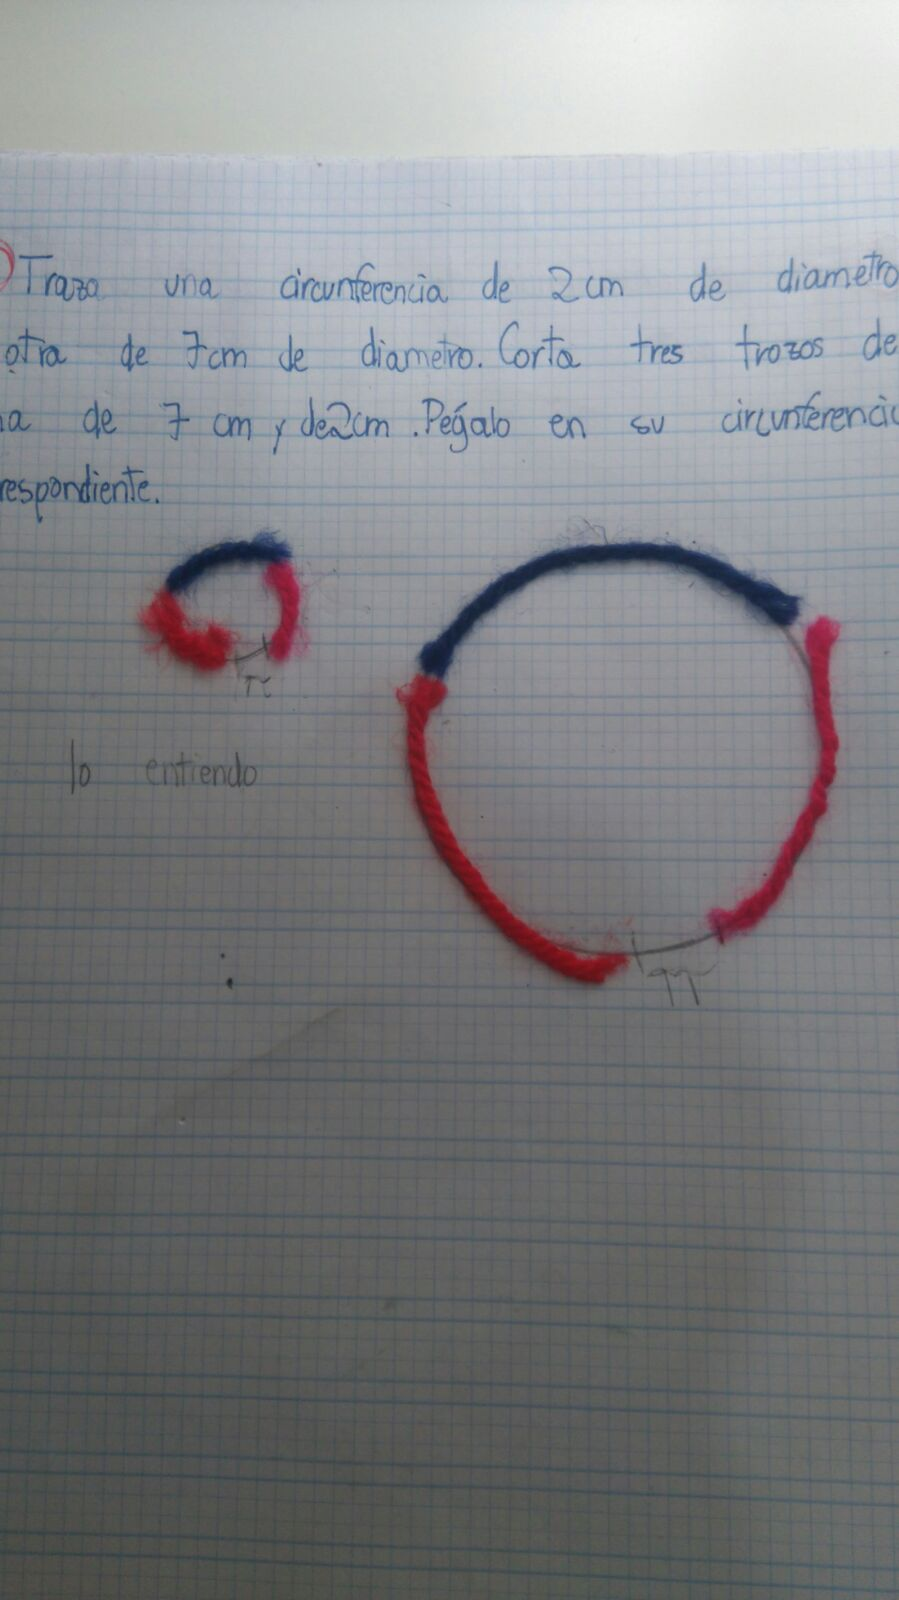 Traza una circunferencia de 2cm de diametro
otra de 7cm de diametro. Corta tres trozos de
na de 7 cm y de2cm. Pégalo en su circunferencia
respondiente.
π
lo entiendo
π